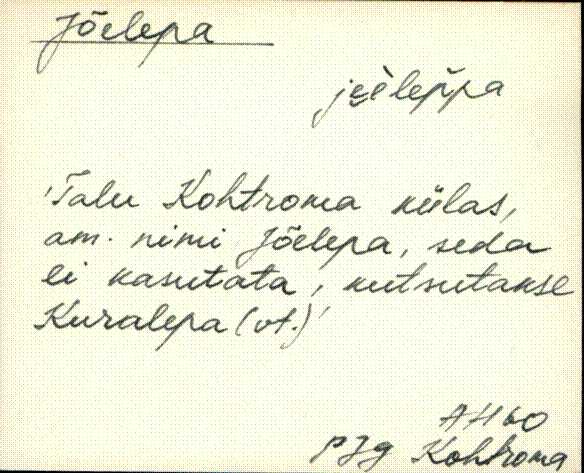 Jõelepa
jẹẹ̀lep̌pa
'Talu Kohtroma külas,
am. nimi Jõelepa, seda
ei kasutata, kutsutakse
Kuralepa (vt.)'
AH60
PJg Kohtroma